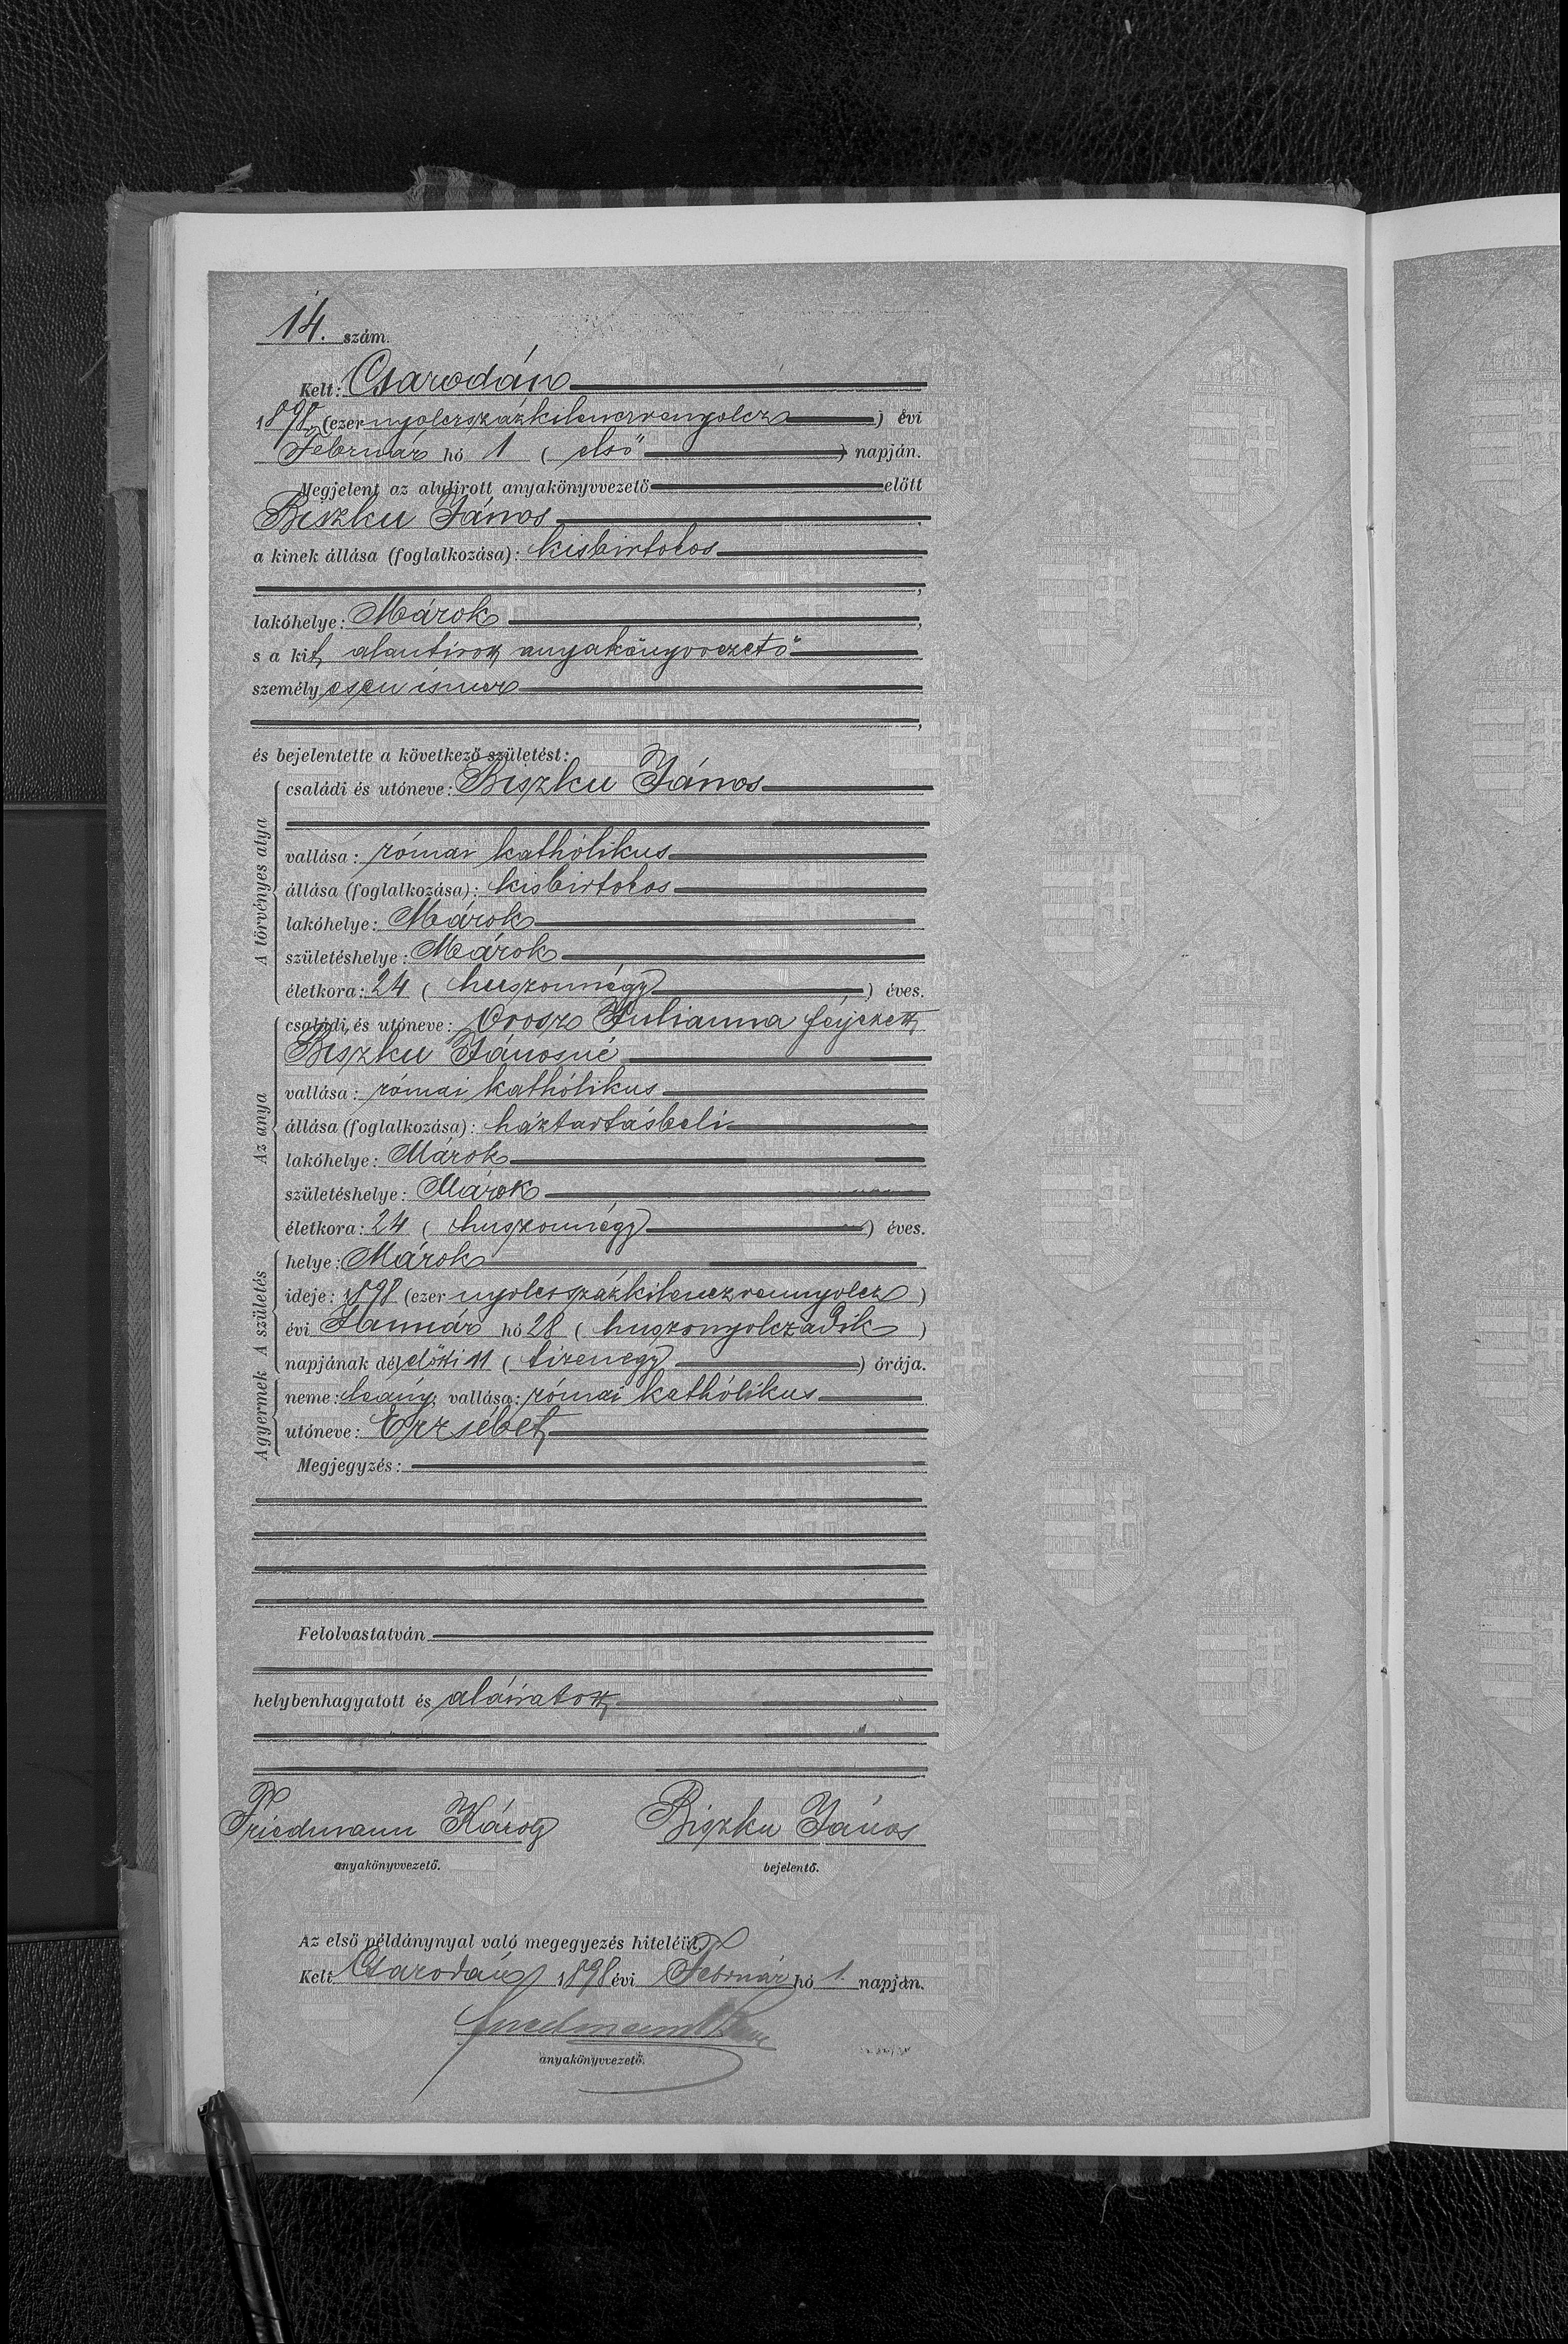 14. szám.
Kelt: Csarodán
1898 (ezer nyolczszázkilenczvennyolcz) évi
Február hó 1 (első) napján.
Megjelent az alulirott anyakönyvvezető előtt
Biszku János
a kinek állása (foglalkozása): kisbirtokos
lakóhelye: Márok,
s a kit alantírott anyakönyvvezető
személyesen ismer,
és bejelentette a következő születést:
A törvényes atya
családi és utóneve: Biszku János
vallása: római kathólikus
állása (foglalkozása): kisbirtokos
lakóhelye: Márok
születéshelye: Márok
életkora: 24 (huszonnégy) éves.
Az anya
családi és utóneve: Orosz Julianna férjezett
Biszku Jánosné
vallása: római kathólikus
állása (foglalkozása): háztartásbeli
lakóhelye: Márok
születéshelye: Márok
életkora: 24 (huszonnégy) éves.
A születés
helye: Márok
ideje: 1898 (ezer nyolczszázkilenczvennyolcz)
évi Január hó 28 (huszonyolczadik)
napjának délelőtti 11 (tizenegy) órája.
A gyermek
neme: leány; vallása: római kathólikus
utóneve: Erzsébet
Megjegyzés:
Felolvastatván
helybenhagyatott és aláiratott
Friedmann Károly Biszku János
anyakönyvvezető. bejelentő.
Az első példánynyal való megegyezés hiteléül.
Kelt Csarodán 1898 évi Február hó 1. napján.
anyakönyvvezető.